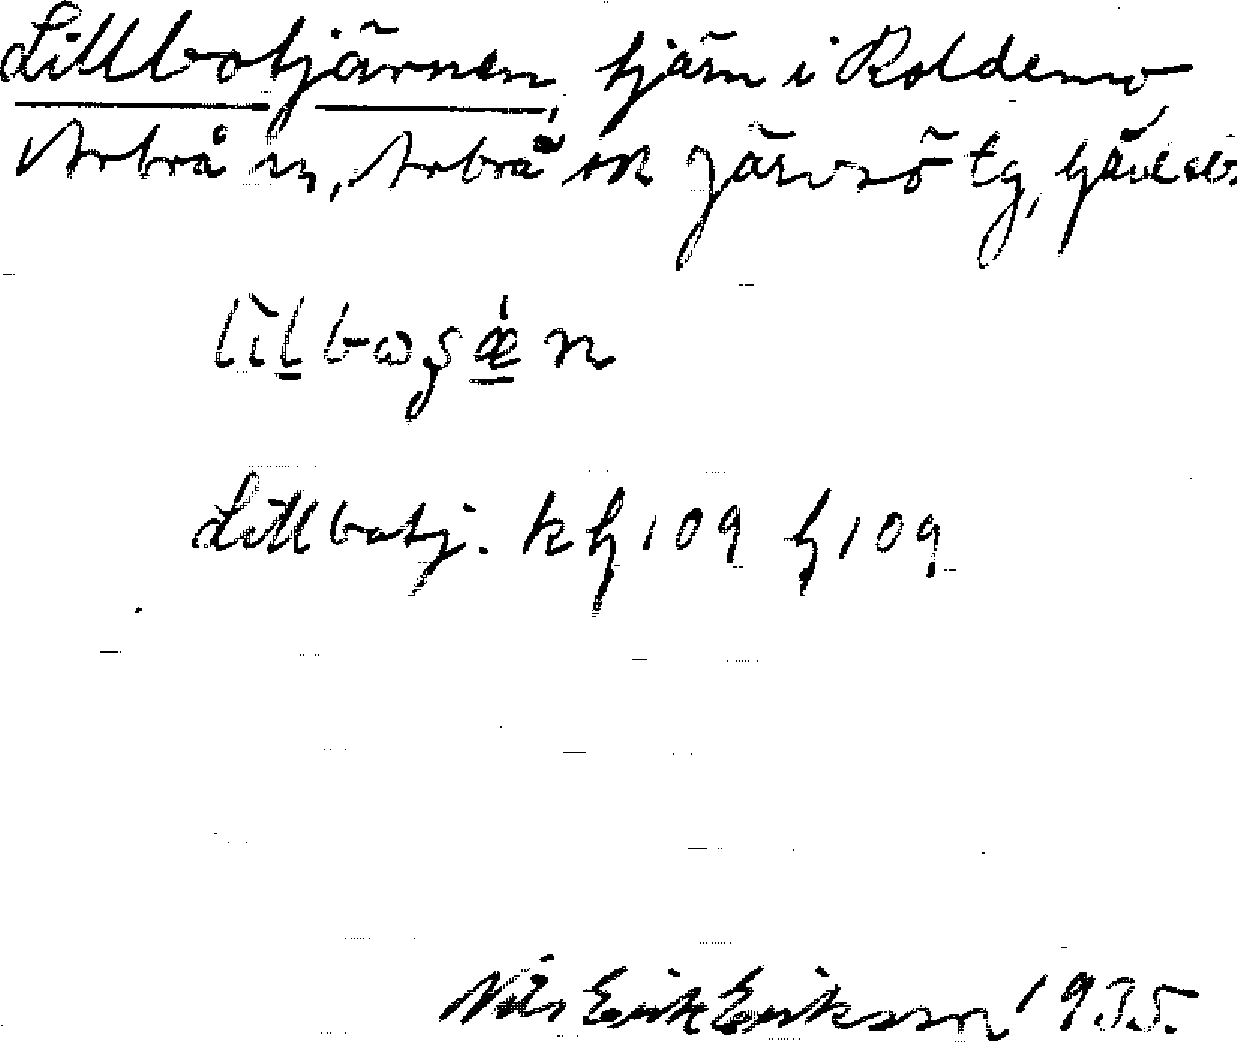 Lillbotjärnen, tjärn i Koldemo,
Arbrå sn, Arbrå ok Järvsö tg, Gävleb.
Lillbotj. kg 109 g 109
Nils Erik Eriksson 1935.